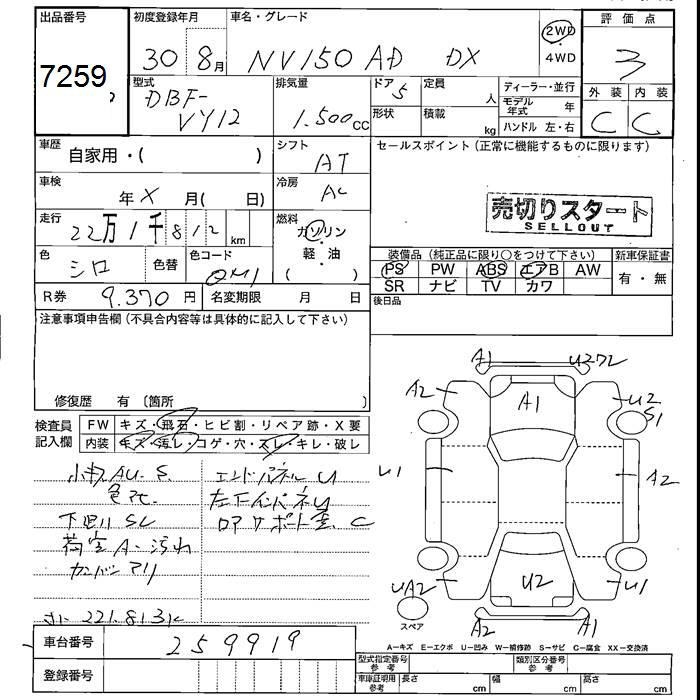 出品番号 初度登録年月 車名・グレード 評価点
7259 30 8月 NV150 AD DX 2WD・4WD 3
型式 排気量 ドア 定員 ディーラー・並行 外装 内装
DBF-VY12 1.500cc 5 人 モデル年式 年 C C
形状 積載 kg ハンドル 左・右
車歴 自家用・( ) シフト AT セールスポイント(正常に機能するものに限ります)
車検 年 X 月( 日) 冷房 AC
売切りスタート
SELLOUT
走行 22万1千812km 燃料 ガソリン・軽・油( )
色 シロ 色替 色コード QM1
装備品(純正品に限り○をつけて下さい) 新車保証書
PS PW ABS エアB AW 有・無
SR ナビ TV カワ
R券 9.370円 名変期限 月 日 後日品
注意事項申告欄(不具合内容等は具体的に記入して下さい)
修復歴 有〔箇所 〕
検査員記入欄 FW キズ・飛石・ヒビ割・リペア跡・X要
内装 キズ・汚レ・コゲ・穴・スレ・キレ・破レ
小キズ AU. S. エンドパネル U
色アセ 左下インパネ U
下回リ SC ロアサポート 歪. C
荷室 A・汚れ
カンバン アリ
221.813K
A1 U272
A2 A1 U2
S1
U1 A2
UA2 U2 U1
スペア A2 A1
車台番号 259919
A-キズ E-エクボ U-凹み W-補修跡 S-サビ C-腐食 XX-交換済
型式指定番号 参考 類別区分番号 参考
登録番号 車庫証明用 参考 長さ cm 幅 cm 高さ cm